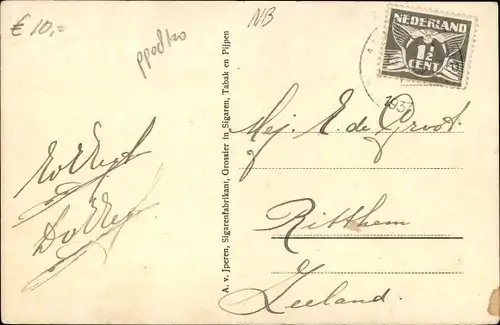 € 10,=
NB
NEDERLAND
1½
CENT
1937
A. v. Jperen, Sigarenfabrikant, Grossier in Sigaren, Tabak en Pijpen
Mej. E. de Groot.
Ritthem
Zeeland.